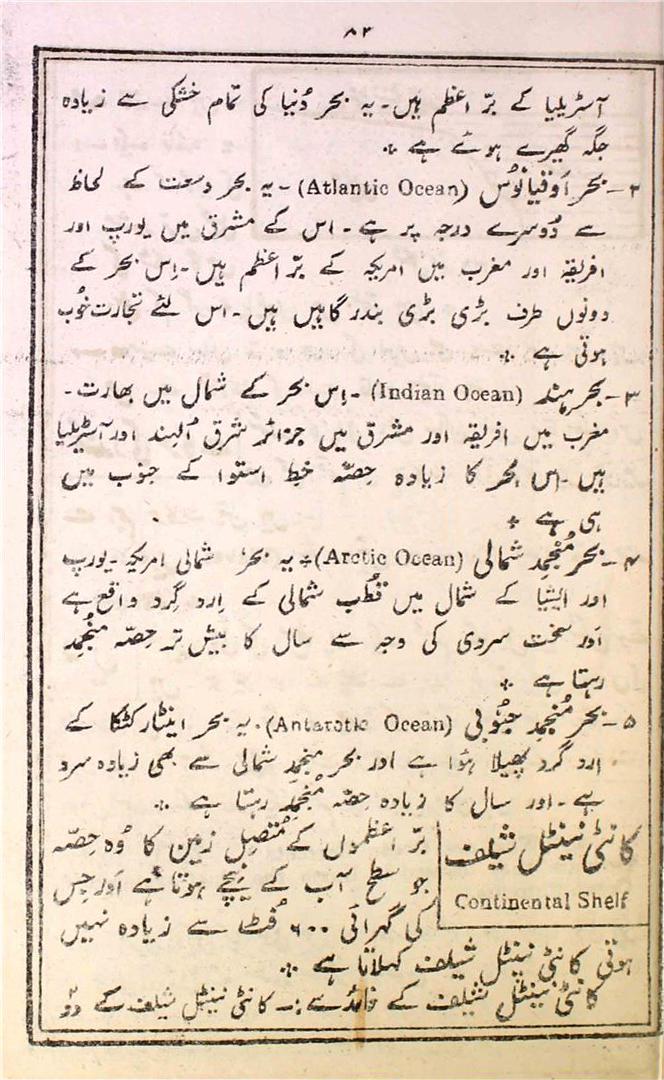 ۸۲
آسٹریلیا کے برّ اعظم ہیں۔ یہ بحر دُنیا کی تمام خشکی سے زیادہ
جگہ گھیرے ہوئے ہے ٭
۲۔ بحر اَوقیانُوس (Atlantic Ocean)۔ یہ بحر وسعت کے لحاظ
سے دُوسرے درجہ پر ہے۔ اس کے مشرق میں یورپ اور
افریقہ اور مغرب میں امریکہ کے برّ اعظم ہیں۔ اِس بحر کے
دونوں طرف بڑی بڑی بندرگاہیں ہیں۔ اس لئے تجارت خُوب
ہوتی ہے ٭
۳۔ بحرِ ہند (Indian Ocean)۔ اِس بحر کے شمال میں بھارت۔
مغرب میں افریقہ اور مشرق میں جزائر شرق اُلہند اور آسٹریلیا
ہیں۔ اِس بحر کا زیادہ حِصّہ خط استوا کے جنوب میں
ہی ہے ٭
۴۔ بحر مُنجمِد شمالی (Arctic Ocean)٭ یہ بحر شمالی امریکہ۔ یورپ
اور ایشیا کے شمال میں قُطب شمالی کے اِرد گِرد واقع ہے
اَور سخت سردی کی وجہ سے سال کا بیش تر حِصّہ مُنجمِد
رہتا ہے ٭
۵۔ بحر مُنجمِد جنُوبی (Antarctic Ocean)۔ یہ بحر اینٹارکٹکا کے
ارد گرد پھیلا ہُوا ہے اور بحر منجمد شمالی سے بھی زیادہ سرد
ہے۔ اور سال کا زیادہ حِصّہ مُنجمِد رہتا ہے ٭
کانٹی نینٹل شیلف
Continental Shelf
برّ اعظموں کے مُتصِل زمین کا وُہ حِصّہ
جو سطح آب کے نیچے ہوتا ہے اَور جِس
کی گہرائی ۶۰۰ فُٹ سے زیادہ نہیں
ہوتی کانٹی نینٹل شیلف کہلاتا ہے ٭
کانٹی نینٹل شیلف کے فائدے:۔ کانٹی نینٹل شیلف کے دو